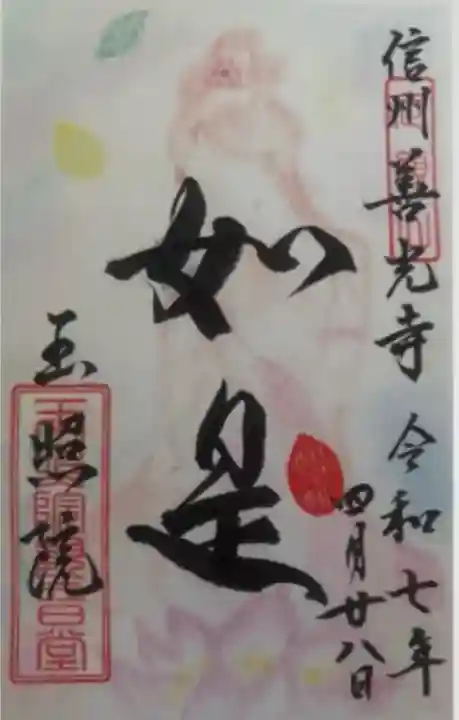 信州善光寺 令和七年
四月廿八日
如是
玉照院